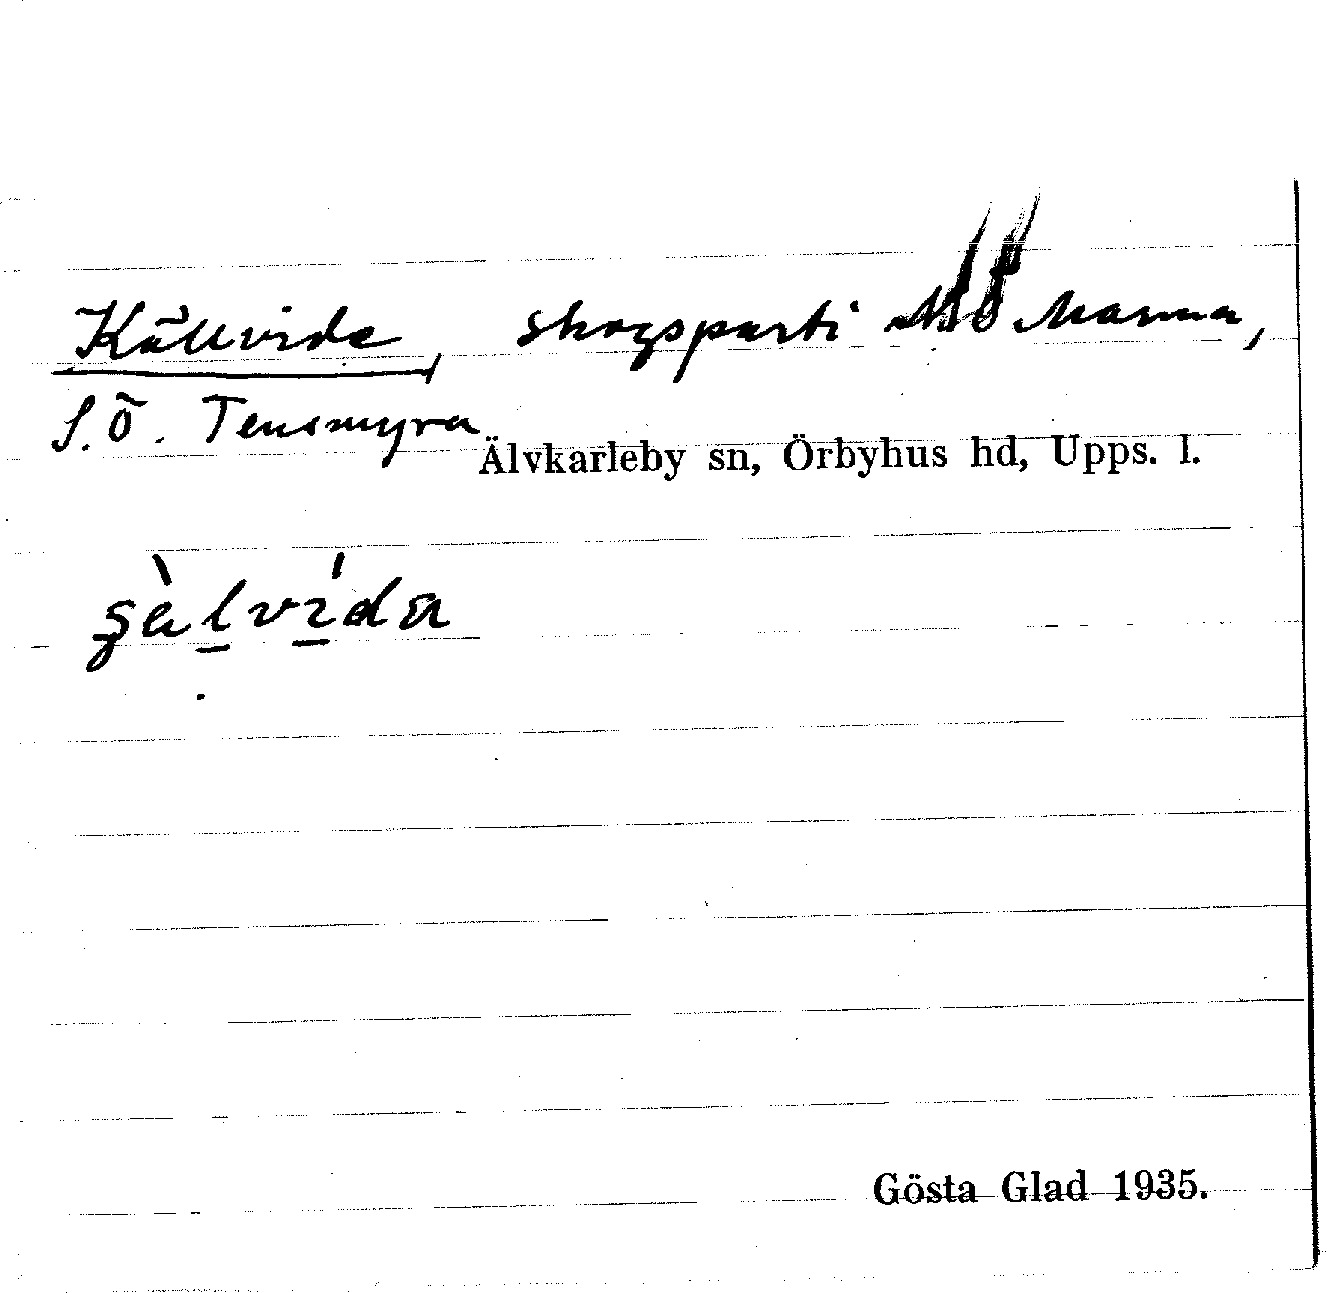 Källvida, skogsparti NÖ Marma,
S.Ö. Tensmyra
Älvkarleby sn, Örbyhus hd, Upps. l.
Gösta Glad 1935.